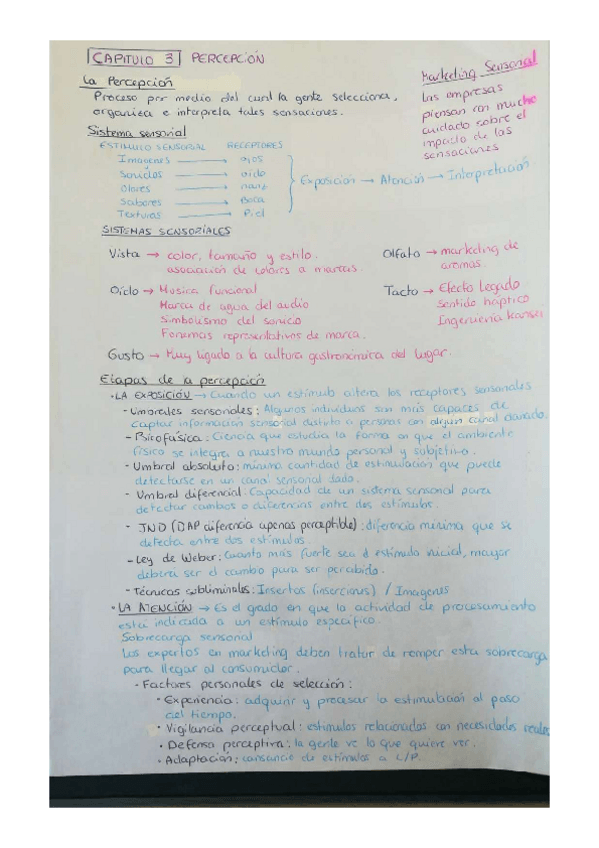 CAPITULO 3 PERCEPCIÓN
Marketing Sensorial
Las empresas
piensan con mucho
cuidado sobre el
impacto de las
sensaciones
La Percepción
Proceso por medio del cual la gente selecciona,
organiza e interpreta tales sensaciones.
Sistema sensorial
ESTIMULO SENSORIAL RECEPTORES
Imagenes → ojos
Sonidos → oido
Olores → nariz
Sabores → Boca
Texturas → Piel
Exposición → Atención → Interpretación
SISTEMAS SENSORIALES
Vista → color, tamaño y estilo.
asociación de colores a marcas.
Oído → Musica funcional
Marca de agua del audio
Simbolismo del sonido
Fonemas representativos de marca.
Olfato → marketing de
aromas.
Tacto → Efecto legado
Sentido háptico
Ingeniería Kansei
Gusto → Muy ligado a la cultura gastronómica del lugar.
Etapas de la percepción
· LA EXPOSICIÓN → Cuando un estímulo altera los receptores sensoriales
- Umbrales sensoriales: Algunos individuos son más capaces de
captar información sensorial distinto a personas con algun canal dañado.
- Psicofísica: Ciencia que estudia la forma en que el ambiente
físico se integra a nuestro mundo personal y subjetivo.
- Umbral absoluto: minima cantidad de estimulación que puede
detectarse en un canal sensorial dado.
- Umbral diferencial: Capacidad de un sistema sensorial para
detectar cambios o diferencias entre dos estimulos.
- JND (DAP diferencia apenas perceptible): diferencia mínima que se
detecta entre dos estímulos.
- Ley de Weber: Cuanto más fuerte sea el estímulo inicial, mayor
debera ser el cambio para ser percibido.
- Técnicas subliminales: Insertos (inserciones) / Imagenes
· LA ATENCIÓN → Es el grado en que la actividad de procesamiento
está indicada a un estímulo específico.
Sobrecarga sensorial
Los expertos en marketing deben tratar de romper esta sobrecarga
para llegar al consumidor.
· Factores personales de selección:
· Experiencia: adquirir y procesar la estimulación al paso
del tiempo.
· Vigilancia perceptual: estimulos relacionados con necesidades reales
· Defensa perceptiva: la gente ve lo que quiere ver.
· Adaptación: cansancio de estímulos a L/P.